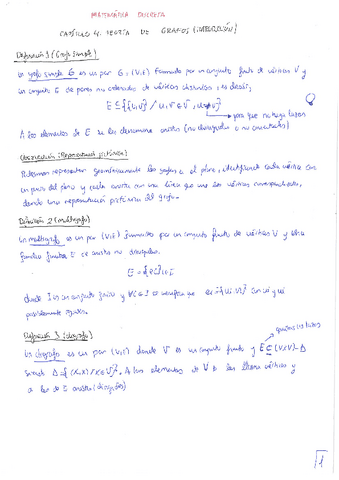 MATEMÁTICA DISCRETA
CAPÍTULO 4. TEORÍA DE GRAFOS (INTRODUCCIÓN)
Definición 1 (Grafo simple)
Un grafo simple G es un par G=(V,E) formado por un conjunto finito de vértices V y
un conjunto E de pares no ordenados de vértices distintos, es decir,
E ⊆ {{u,v} / u,v ∈ V, u≠v}
para que no haya lazos
A los elementos de E se les denomina aristas (no dirigidas o no orientadas)
Observación (Representación pictórica)
Podemos representar geométricamente los grafos en el plano, identificando cada vértice con
un punto del plano y cada arista con una línea que une los vértices correspondientes,
dando una representación pictórica del grafo.
Definición 2 (multigrafo)
Un multigrafo es un par (V,E) formado por un conjunto finito de vértices V y una
familia finita E de aristas no dirigidas.
donde I es un conjunto finito y ∀i ∈ I se verifica que
posiblemente iguales.
Definición 3 (digrafo)
quitamos los lazos
Un digrafo es un par (V,E) donde V es un conjunto finito y E ⊆ (V×V)-Δ
siendo Δ={(x,x) / x∈V}. A los elementos de V se les llama vértices y
a los de E aristas (dirigidas)
1